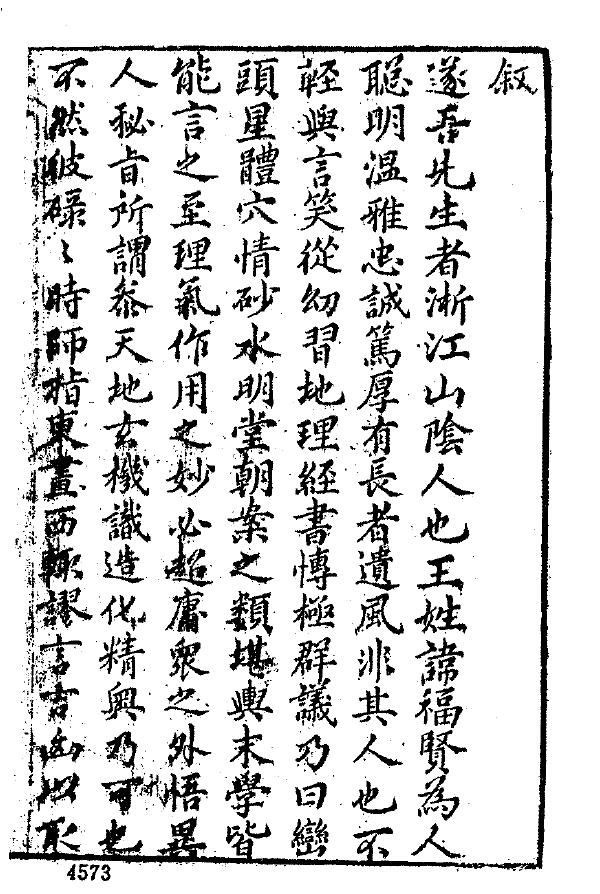 叙
遂吾先生者淅江山陰人也王姓諱福賢為人
聰明溫雅忠誠篤厚有長者遺風非其人也不
輕與言笑從幼習地理經書博極群議乃曰巒
頭星體穴情砂水明堂朝案之類堪輿末學皆
能言之至理氣作用之妙必超庸眾之外悟異
人秘旨所謂叅天地玄機識造化精奧乃可也
不然彼碌々時師指東畫西輒謬言吉凶以取
4573